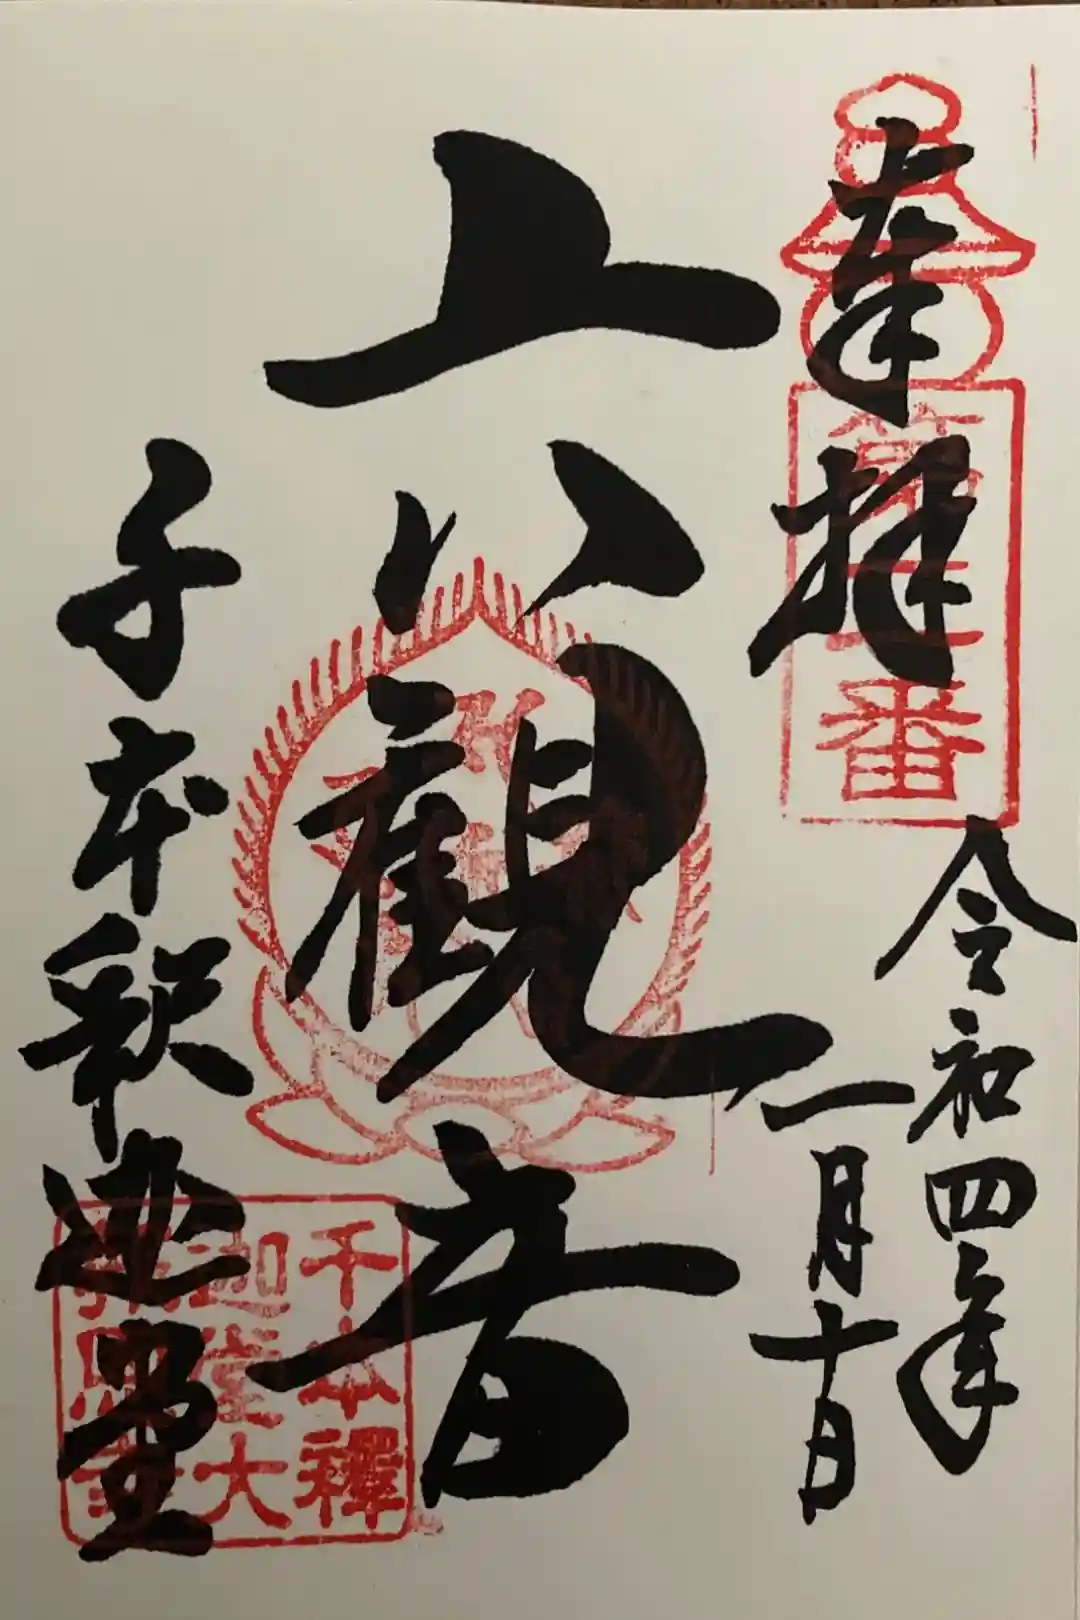 奉拝
番
令和四年
一月十日
六観音
千本釈迦堂
千本釋
迦堂大